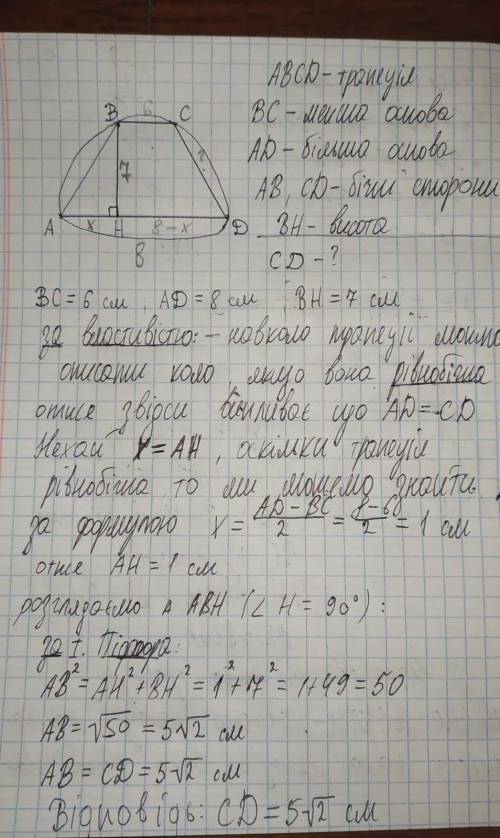 B 6 C
7
?
A x H 8-x D
8
ABCD - трапеція
BC - менша основа
AD - більша основа
AB, CD - бічні сторони
BH - висота
CD - ?
BC = 6 см ; AD = 8 см ; BH = 7 см
за властивістю: - навколо трапеції можна
описати коло, якщо вона рівнобічна
отже звідси випливає що AD = CD
Нехай x = AH, оскільки трапеція
рівнобічна то ми можемо знайти
за формулою x = AD - BC / 2 = 8 - 6 / 2 = 1 см
отже AH = 1 см
розглядаємо Δ ABH (∠ H = 90°) :
за т. Піфагора:
AB² = AH² + BH² = 1² + 7² = 1 + 49 = 50
AB = √50 = 5√2 см
AB = CD = 5√2 см
Відповідь: CD = 5√2 см